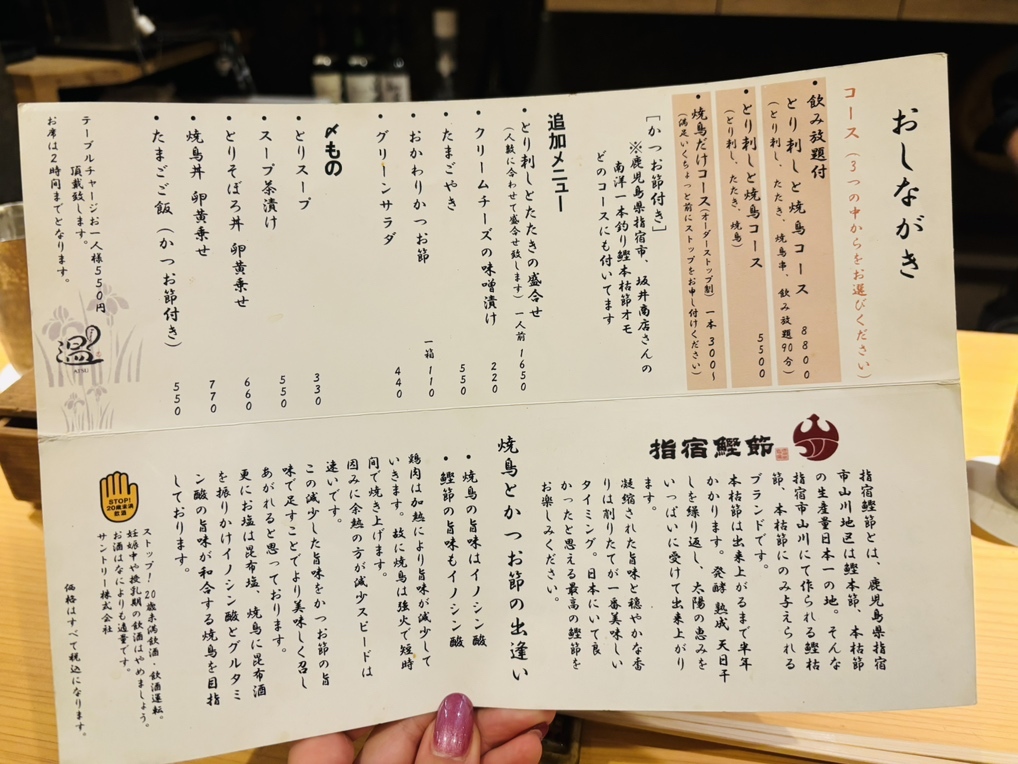 おしながき
コース（3つの中からをお選びください）
・飲み放題付
とり刺しと焼鳥コース 8800
（とり刺し、たたき、焼鳥串、飲み放題90分）
・とり刺しと焼鳥コース 5500
（とり刺し、たたき、焼鳥）
・焼鳥だけコース（オーダーストップ制） 一本 300〜
（満足いくちょっと前にストップをお申し付けください）
［かつお節付き］
※鹿児島県指宿市、坂井商店さんの
南洋一本釣り鰹本枯節オモ
どのコースにも付いてます
追加メニュー
・とり刺しとたたきの盛合せ
（人数に合わせて盛合せ致します）一人前 1650
・クリームチーズの味噌漬け 220
・たまごやき 550
・おかわりかつお節 一箱 110
・グリーンサラダ 440
〆もの
・とりスープ 330
・スープ茶漬け 550
・とりそぼろ丼 卵黄乗せ 660
・焼鳥丼 卵黄乗せ 770
・たまごご飯（かつお節付き） 550
テーブルチャージお一人様550円
頂戴致します。
お席は2時間までとなります。
温
ATSU
指宿鰹節
指宿鰹節とは、鹿児島県指宿
市山川地区は鰹本節、本枯節
の生産量日本一の地。そんな
指宿市山川にて作られる鰹枯
節、本枯節にのみ与えられる
ブランドです。
本枯節は出来上がるまで半年
かかります。発酵 熟成 天日干
しを繰り返し、太陽の恵みを
いっぱいに受けて出来上がり
ます。
凝縮された旨味と穏やかな香
りは削りたてが一番美味しい
タイミング。日本にいて良
かったと思える最高の鰹節を
お楽しみください。
焼鳥とかつお節の出逢い
・焼鳥の旨味はイノシン酸
・鰹節の旨味もイノシン酸
鶏肉は加熱により旨味が減少して
いきます。故に焼鳥は強火で短時
間で焼き上げます。
因みに余熱の方が減少スピードは
速いです。
この減少した旨味をかつお節の旨
味で足すことでより美味しく召し
あがれると思っております。
更にお塩は昆布塩、焼鳥に昆布酒
を振りかけイノシン酸とグルタミ
ン酸の旨味が和合する焼鳥を目指
しております。
STOP!
20歳未満
飲酒
ストップ！20歳未満飲酒・飲酒運転。
妊娠中や授乳期の飲酒はやめましょう。
お酒はなによりも適量です。
サントリー株式会社
価格はすべて税込になります。